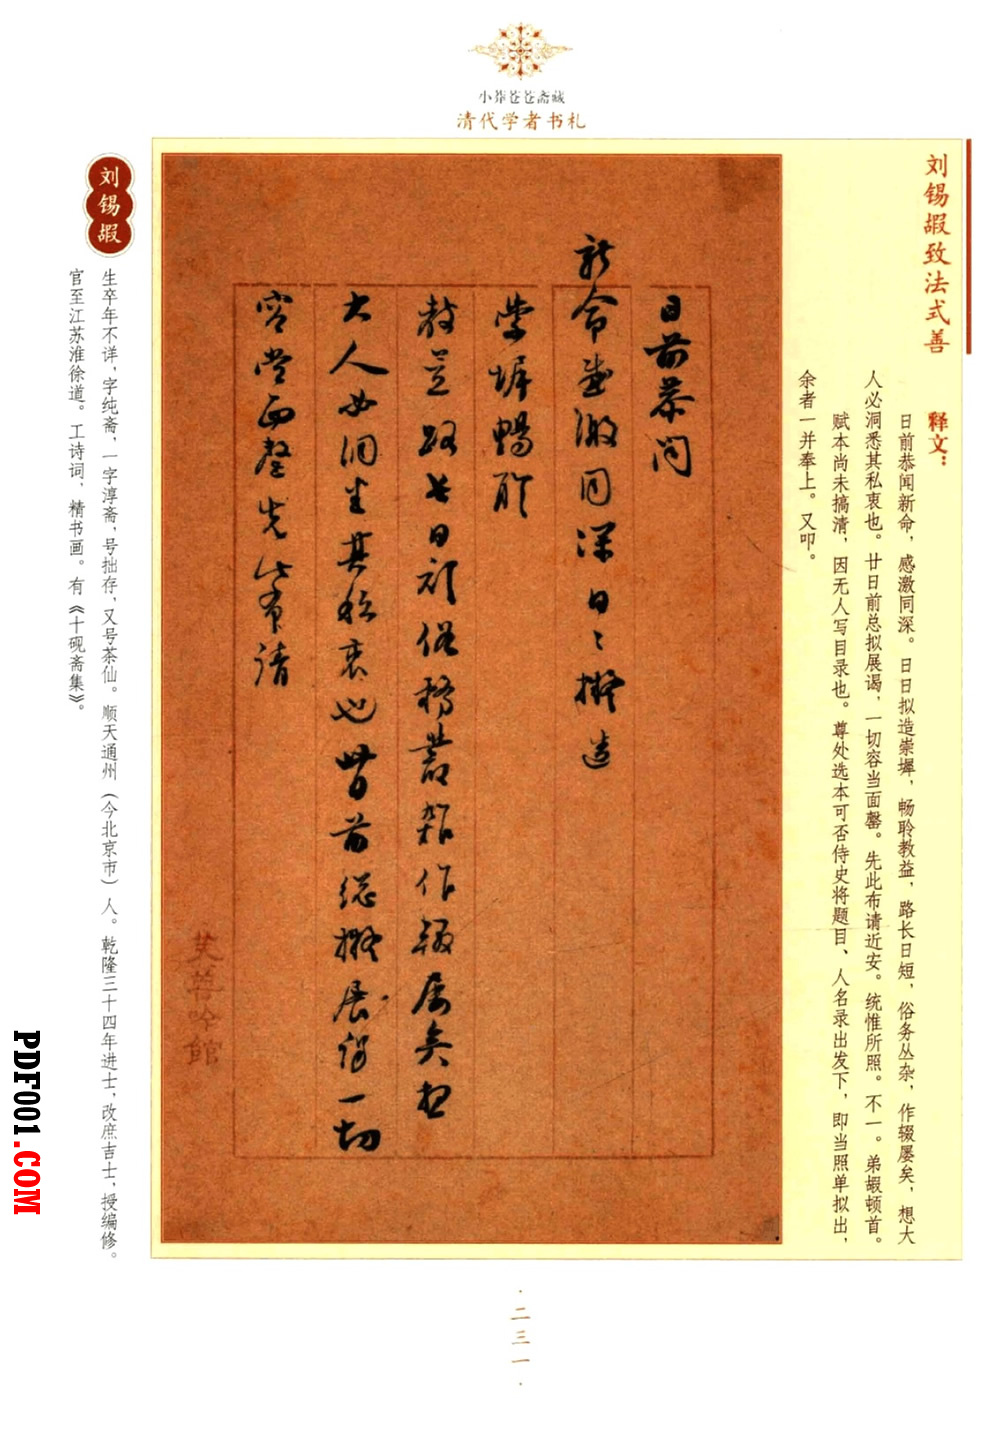 小莽苍苍斋藏
清代学者书札
刘锡嘏致法式善
释文：
日前恭闻新命，感激同深。日日拟造崇墀，畅聆教益，路长日短，俗务丛杂，作辍屡矣，想大
人必洞悉其私衷也。廿日前总拟展谒，一切容当面罄。先此布请近安。统惟所照。不一。弟嘏顿首。
赋本尚未搞清，因无人写目录也。尊处选本可否侍史将题目、人名录出发下，即当照单拟出，
余者一并奉上。又叩。
日前恭闻
新命感激同深日日拟造
崇墀畅聆
教益路长日短俗务丛杂作辍屡矣想
大人必洞悉其私衷也廿日前总拟展谒一切
容当面罄先此布请
芙蓉吟館
刘锡嘏
生卒年不详，字纯斋，一字淳斋，号拙存，又号茶仙。顺天通州（今北京市）人。乾隆三十四年进士，改庶吉士，授编修。
官至江苏淮徐道。工诗词，精书画。有《十砚斋集》。
·二三一·
PDF001.COM